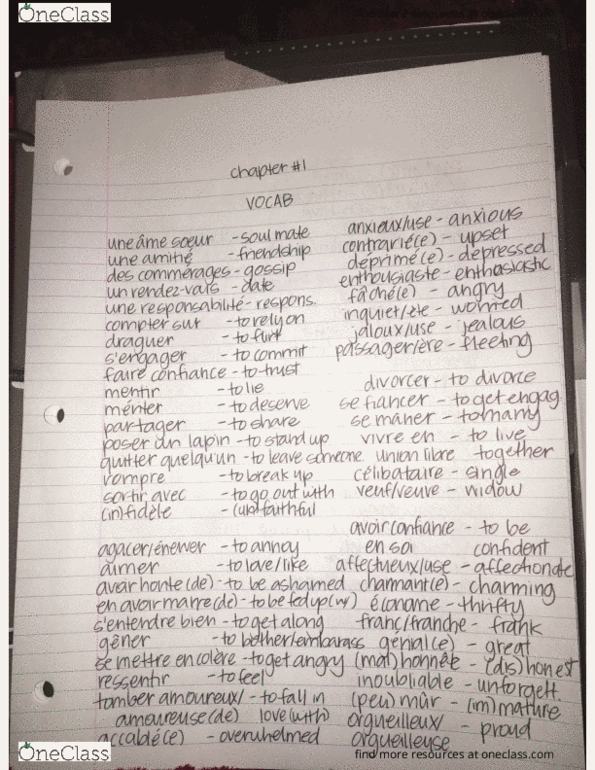 OneClass
chapter #1
VOCAB
une âme sœur - soul mate
une amitié - friendship
des commérages - gossip
un rendez-vais - date
une responsabilité - respons.
compter sur - to rely on
draguer - to flirt
s'engager - to commit
faire confiance - to trust
mentir - to lie
mériter - to deserve
partager - to share
poser un lapin - to stand up
quitter quelqu'un - to leave someone
rompre - to break up
sortir avec - to go out with
(in)fidèle - (un)faithful
agacer/énerver - to annoy
aimer - to love/like
avoir honte (de) - to be ashamed
en avoir marre (de) - to be fed up (w/)
s'entendre bien - to get along
gêner - to bother/embarass
se mettre en colère - to get angry
ressentir - to feel
tomber amoureux/ - to fall in
amoureuse (de) love (with)
accablé(e) - overwhelmed
anxieux/use - anxious
contrarié(e) - upset
déprimé(e) - depressed
enthousiaste - enthasiastic
fâché(e) - angry
inquiet/ète - worried
jaloux/use - jealous
passager/ère - fleeting
divorcer - to divorce
se fiancer - to get engag
se marier - to marry
vivre en - to live
union libre together
célibataire - single
veuf/veuve - widow
avoir confiance - to be
en soi confident
affectueux/use - affectionate
charmant(e) - charming
économe - thrifty
franc/franche - frank
génial(e) - great
(mal)honnête - (dis)honest
inoubliable - unforgett.
(peu) mûr - (im)mature
orgueilleux/ - proud
orgueilleuse
OneClass
find more resources at oneclass.com